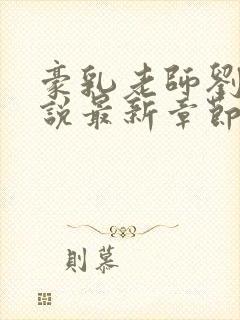 豪乳老師劉
說最新章節
則慕